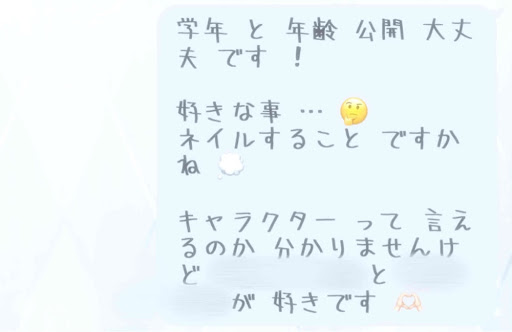 学年 と 年齢 公開 大丈
夫 です ！
好きな事 … 🤔
ネイルすること ですか
ね 💭
キャラクター って 言え
るのか 分かりませんけ
ど と
が 好きです 🫶🏻